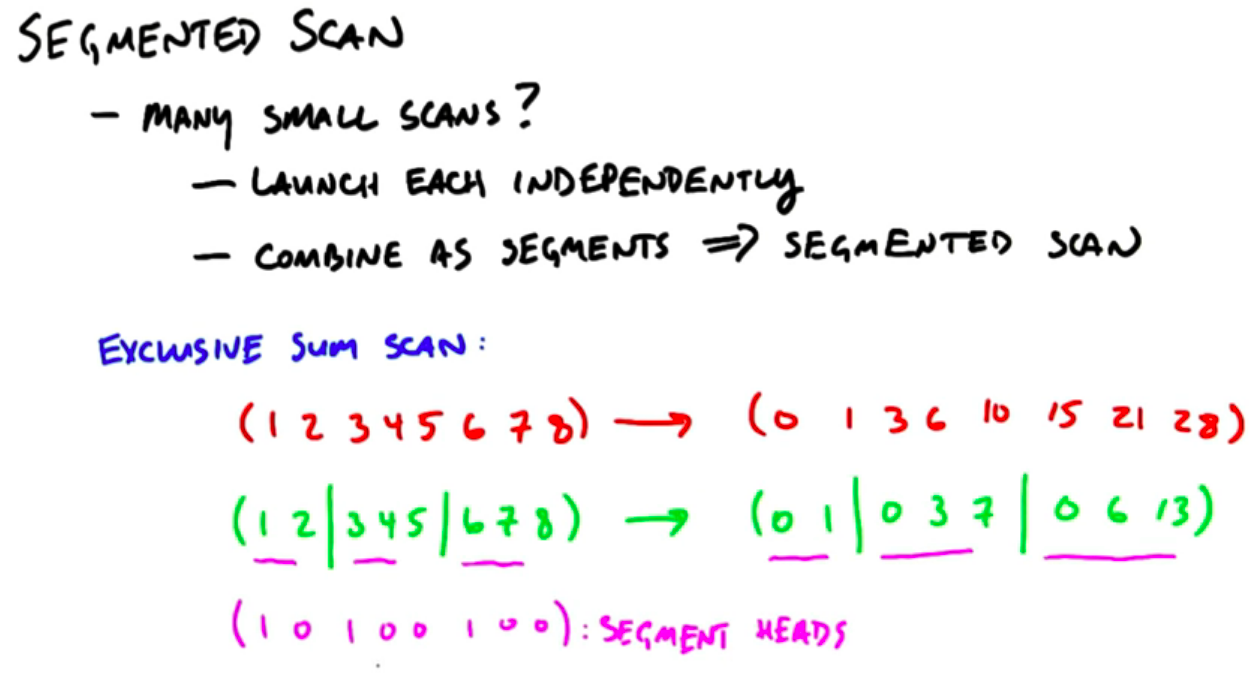 SEGMENTED SCAN
- MANY SMALL SCANS?
- LAUNCH EACH INDEPENDENTLY
- COMBINE AS SEGMENTS ⇒ SEGMENTED SCAN
EXCLUSIVE SUM SCAN:
(1 2 3 4 5 6 7 8) → (0 1 3 6 10 15 21 28)
(1 2 | 3 4 5 | 6 7 8) → (0 1 | 0 3 7 | 0 6 13)
(1 0 1 0 0 1 0 0): SEGMENT HEADS